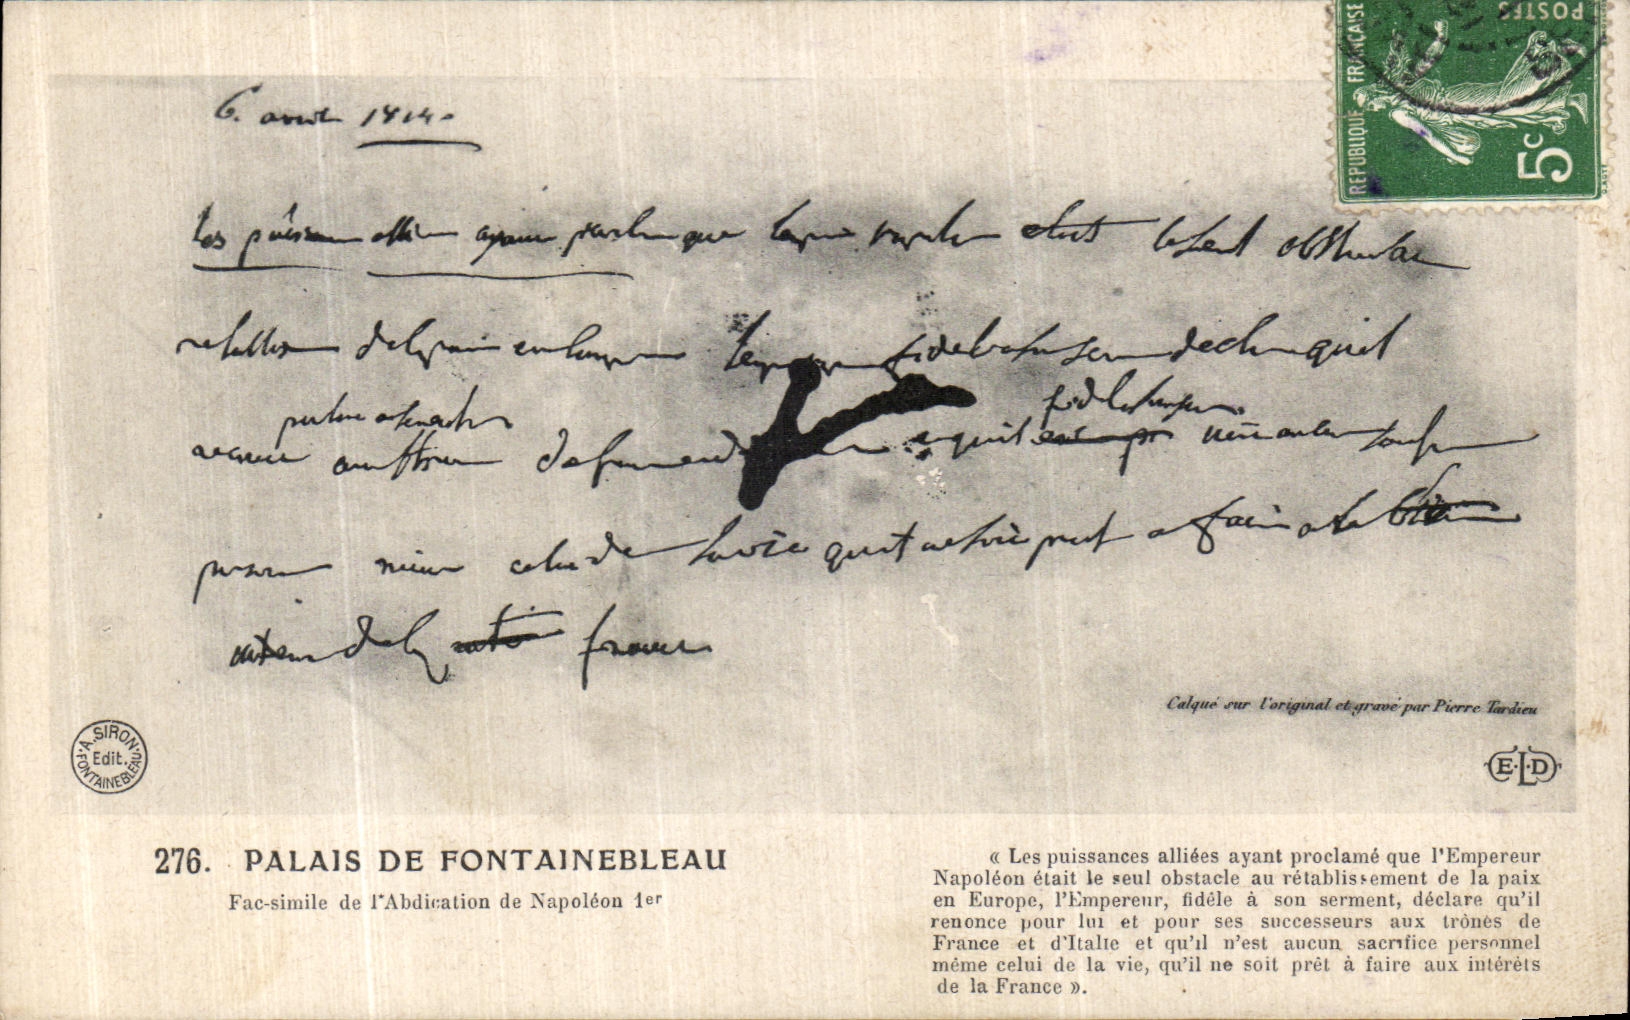 REPUBLIQUE FRANÇAISE
POSTES
5c
6. avril 1814.
les puissances alliées ayant proclamé que l'empereur napoléon etait le seul obstacle au
retablissement de la paix en europe l'empereur fidele a son serment declare qu'il
pour lui et ses enfants
renonce aux trones de france et d'italie et qu'il
fidele a son serment
personnel meme celui de la vie qu'il ne soit pret a faire a la
interet de la france
Calqué sur l'original et gravé par Pierre Tardieu
A. SIRON
Edit.
FONTAINEBLEAU
E.L.D
276. PALAIS DE FONTAINEBLEAU
Fac-simile de l'Abdication de Napoléon 1er
« Les puissances alliées ayant proclamé que l'Empereur
Napoléon était le seul obstacle au rétablissement de la paix
en Europe, l'Empereur, fidèle à son serment, déclare qu'il
renonce pour lui et pour ses successeurs aux trônes de
France et d'Italie et qu'il n'est aucun sacrifice personnel
même celui de la vie, qu'il ne soit prêt à faire aux intérêts
de la France ».